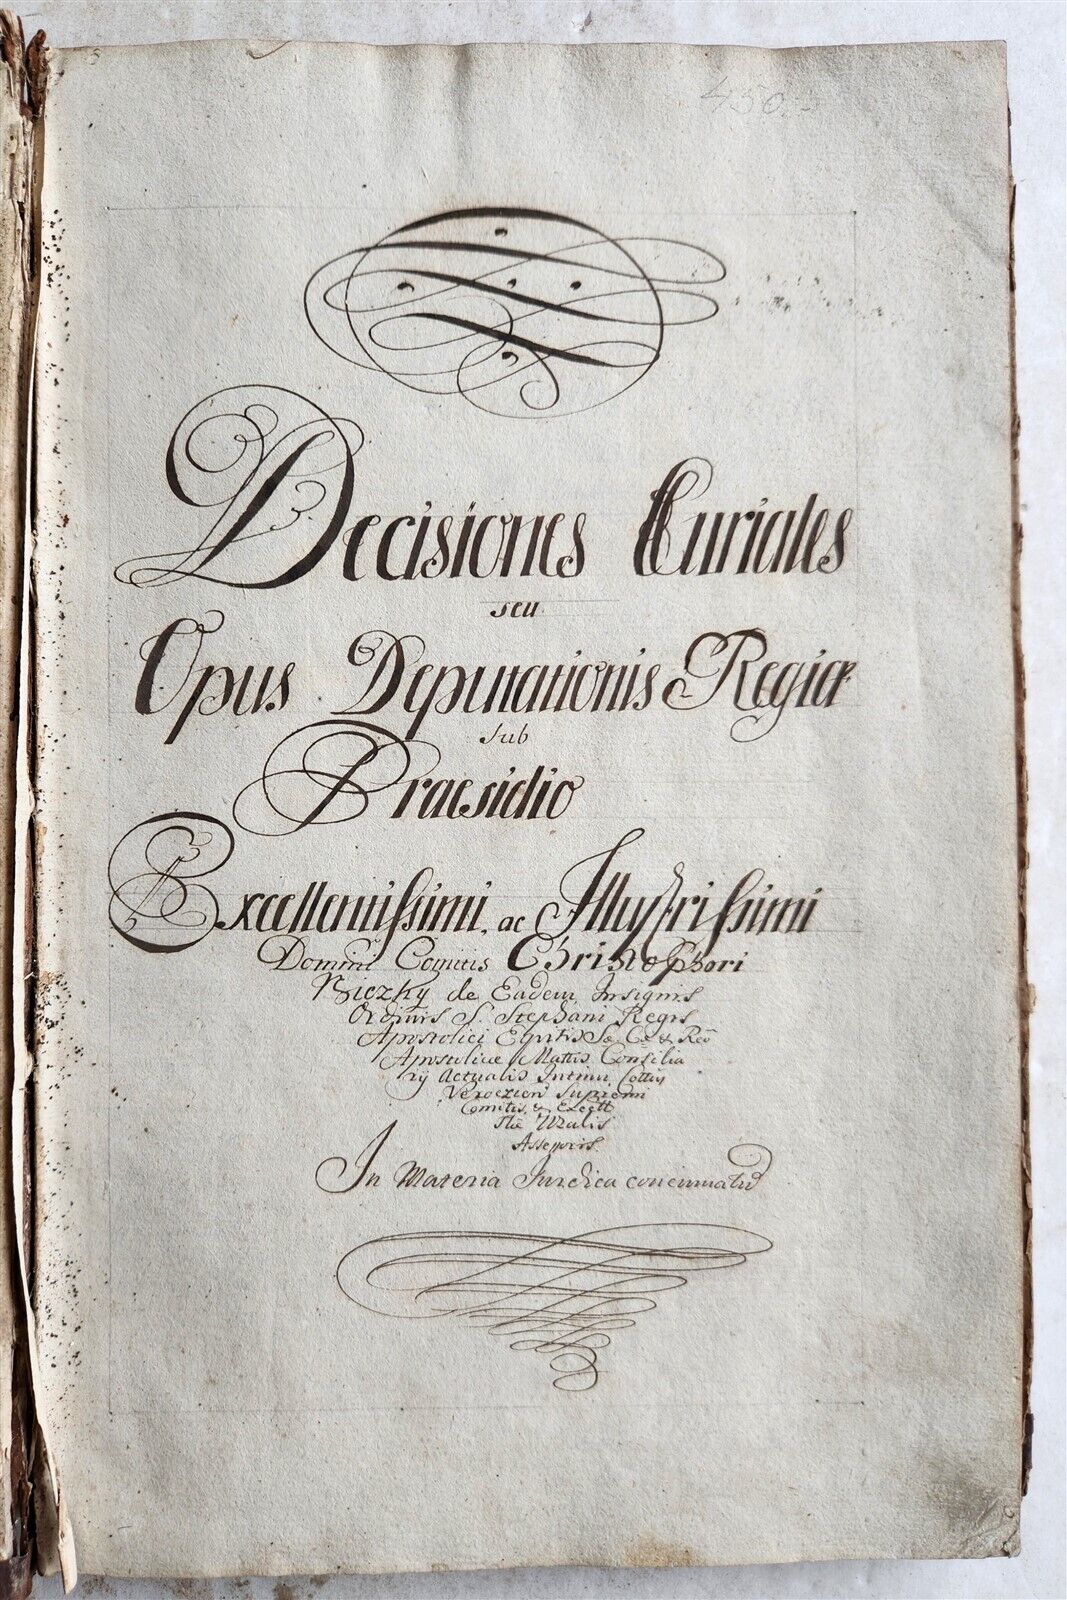 450
Decisiones Curiales
seu
Opus Deputationis Regiæ
sub
Praesidio
Excellentissimi, ac Illustrissimi
Domini Comitis Christophori
Niczky de Eadem, Insignis
Ordinis S. Stephani Regis
Apostolici Equitis Sæ Cæ & Reo
Apostolicae Mattis Consilia
rij Actualis Intimi, Cottus
Verocziens Supremi
Comitis, & Excell
Tbalis
Assessoris.
In Materia Juridica concinnatū